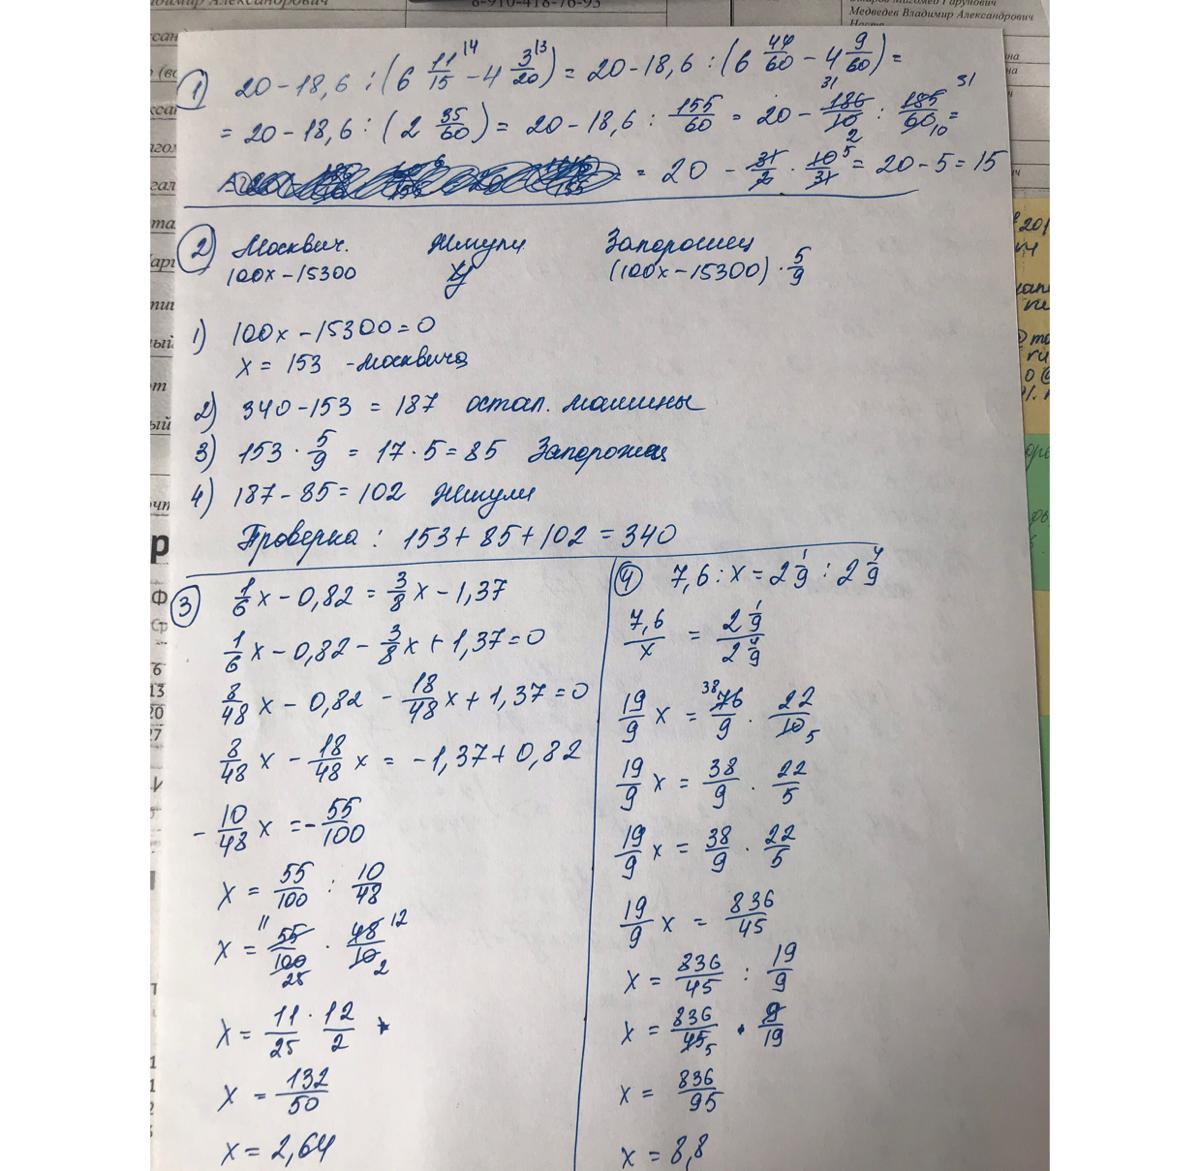 8-910-418-76-93
Медведев Владимир Александрович
1) 20 - 18,6 : (6 11/15 14 - 4 3/20 13) = 20 - 18,6 : (6 44/60 - 4 9/60) =
= 20 - 18,6 : (2 35/60) = 20 - 18,6 : 155/60 = 20 - 31 186/10 2 : 155/60 10 31 =
= 20 - 31/2 · 10/31 5 = 20 - 5 = 15
2) Москвич. Жигули Запорожец
100x - 15300 y (100x - 15300) · 5/9
1) 100x - 15300 = 0
x = 153 - москвича
2) 340 - 153 = 187 остал. машины
3) 153 · 5/9 = 17 · 5 = 85 Запорожец
4) 187 - 85 = 102 Жигули
Проверка : 153 + 85 + 102 = 340
3) 1/6 x - 0,82 = 3/8 x - 1,37
1/6 x - 0,82 - 3/8 x + 1,37 = 0
8/48 x - 0,82 - 18/48 x + 1,37 = 0
8/48 x - 18/48 x = - 1,37 + 0,82
- 10/48 x = - 55/100
x = 55/100 : 10/48
x = 11 55/100 25 · 48/10 12 2
x = 11/25 · 12/2
x = 132/50
x = 2,64
4) 7,6 : x = 2 1/9 : 2 4/9
7,6/x = 2 1/9 / 2 4/9
19/9 x = 38 76/9 · 22/10 5
19/9 x = 38/9 · 22/5
19/9 x = 38/9 · 22/5
19/9 x = 836/45
x = 836/45 : 19/9
x = 836/45 5 · 9/19
x = 836/95
x = 8,8